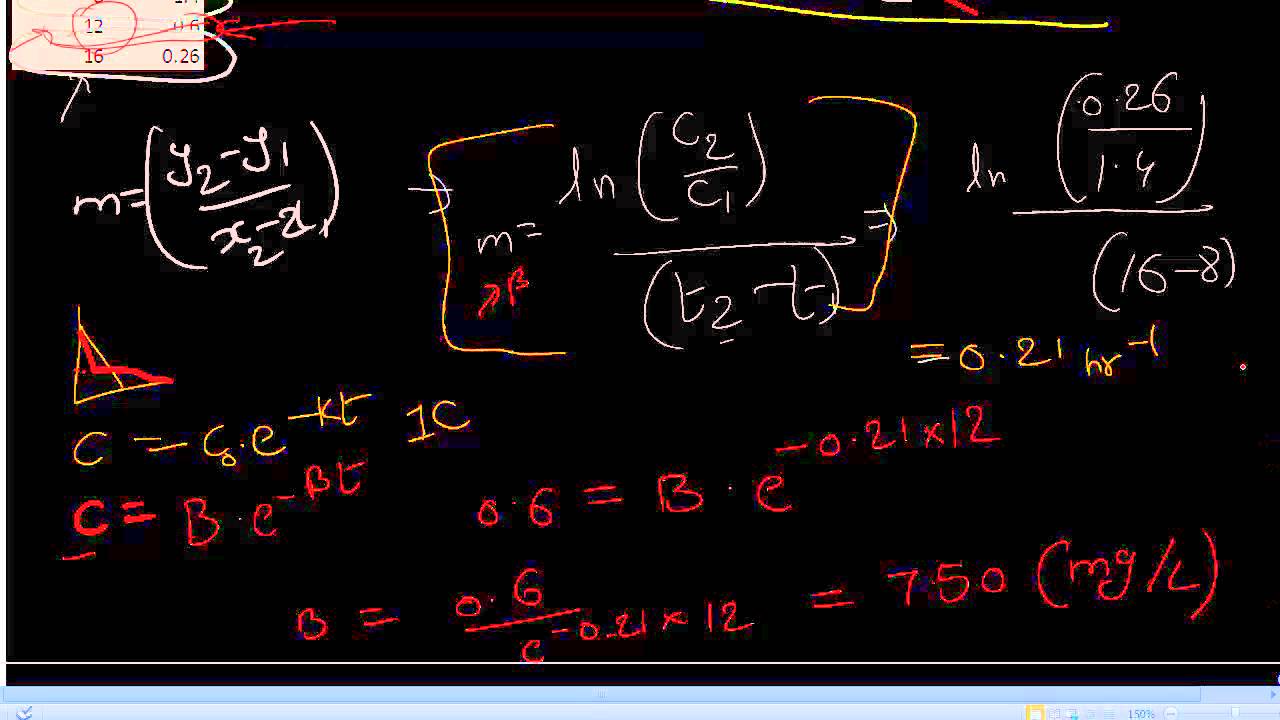 12 0.6
16 0.26
m = (y₂ - y₁ / x₂ - x₁) ⇒ m = ln (C₂ / C₁) / (t₂ - t₁) ⇒ ln (0.26 / 1.4) / (16 - 8)
β
= 0.21 hr⁻¹
C = C₀.e⁻ᵏᵗ 1C
C = B.e^-βt 0.6 = B.e^-0.21×12
B = 0.6 / e^-0.21×12 = 7.50 (mg/L)
150%